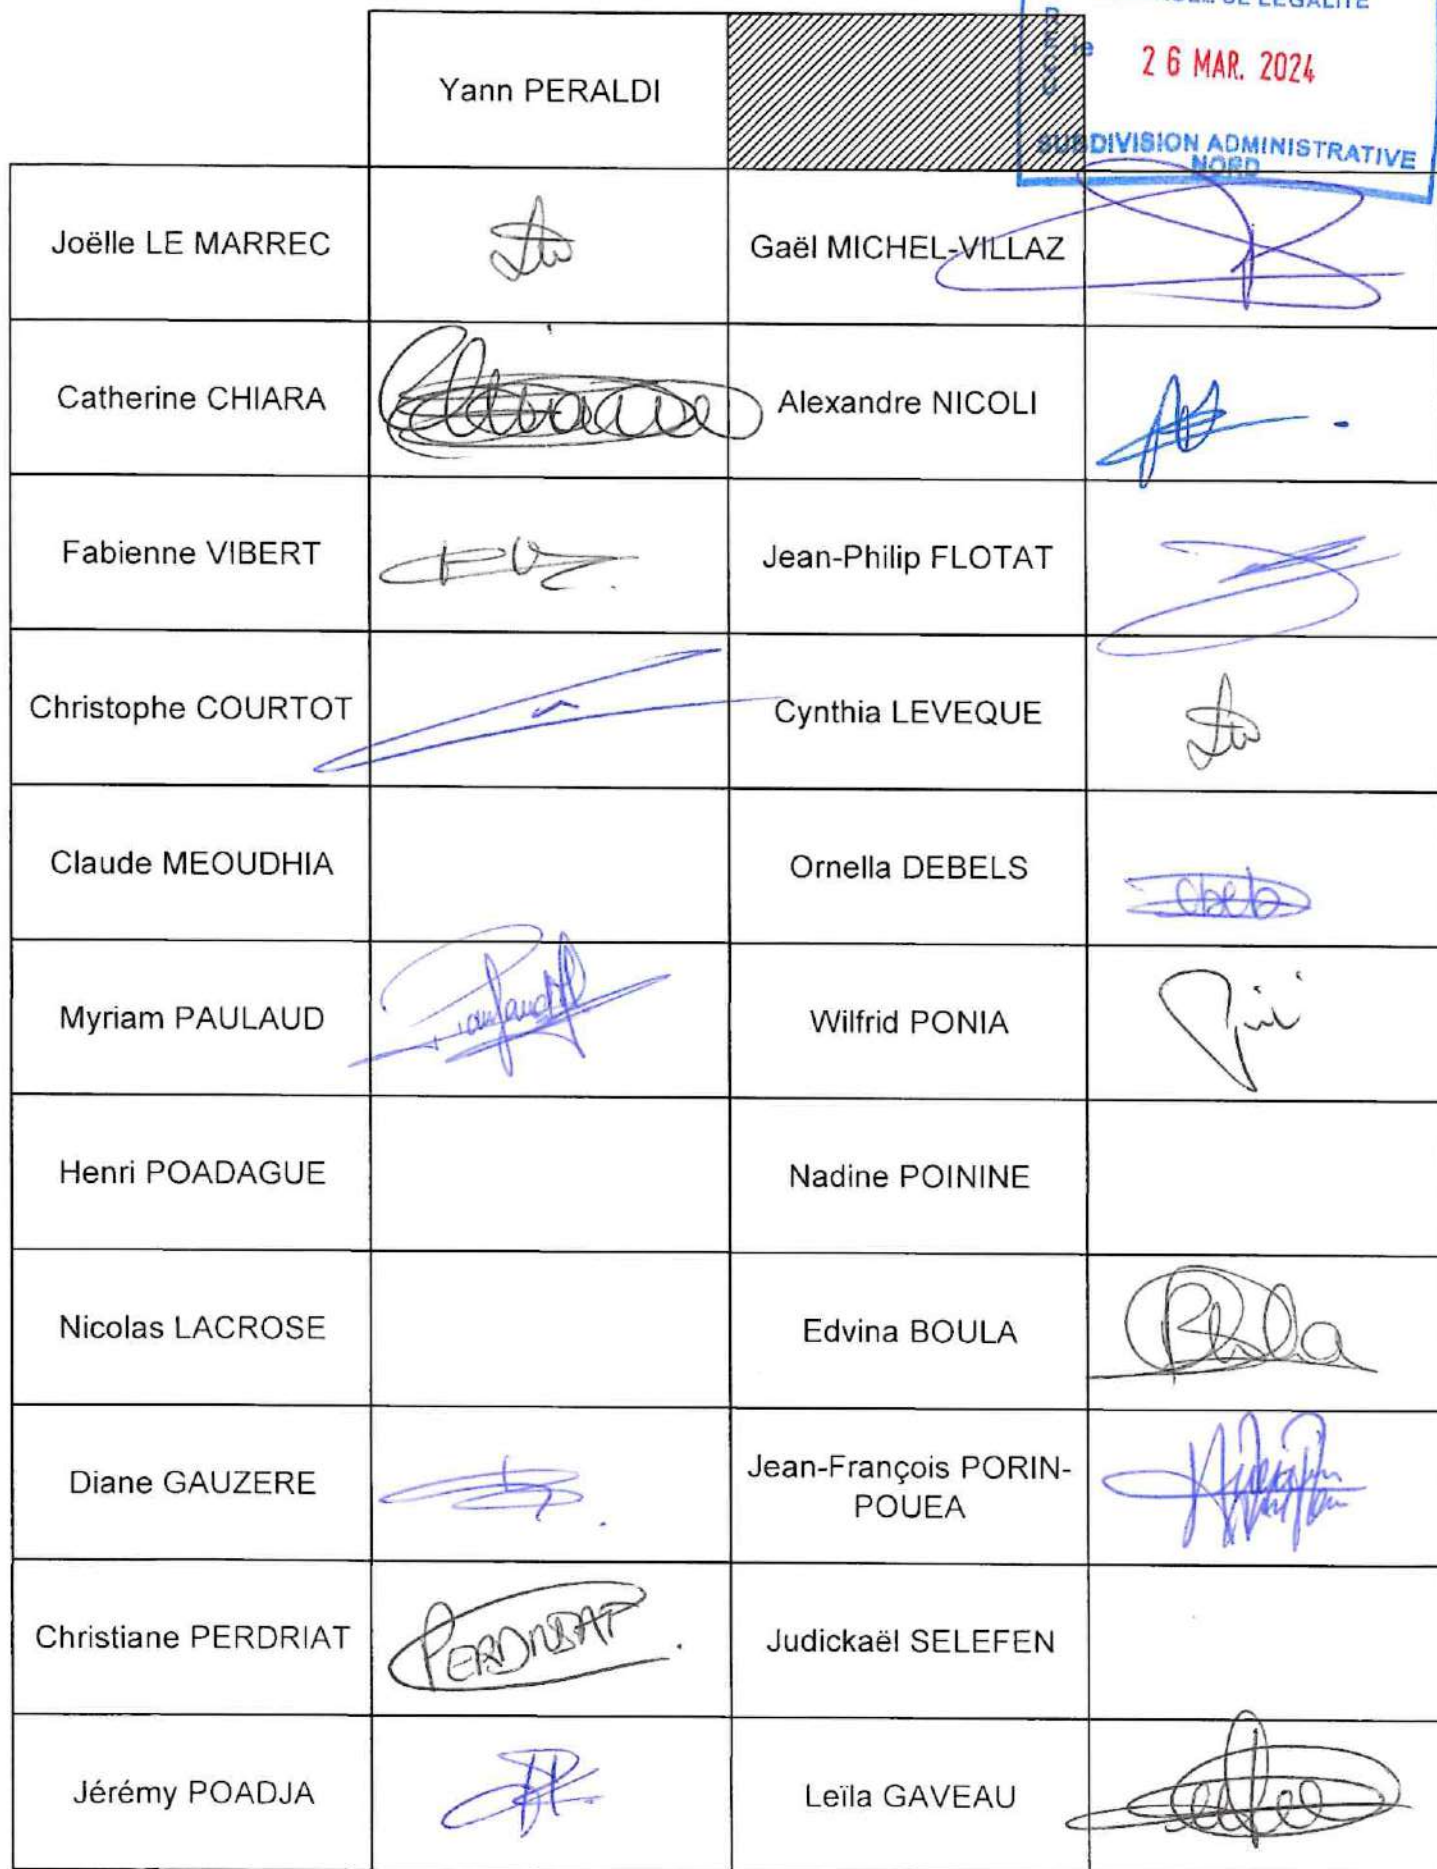 DE LEGALITE
Yann PERALDI
REÇU
le
26 MAR. 2024
SUBDIVISION ADMINISTRATIVE
NORD
Joëlle LE MARREC
Gaël MICHEL-VILLAZ
Catherine CHIARA
Alexandre NICOLI
Fabienne VIBERT
Jean-Philip FLOTAT
Christophe COURTOT
Cynthia LEVEQUE
Claude MEOUDHIA
Ornella DEBELS
Myriam PAULAUD
Wilfrid PONIA
Henri POADAGUE
Nadine POININE
Nicolas LACROSE
Edvina BOULA
Diane GAUZERE
Jean-François PORIN-
POUEA
Christiane PERDRIAT
PERDRIAT
Judickaël SELEFEN
Jérémy POADJA
Leïla GAVEAU